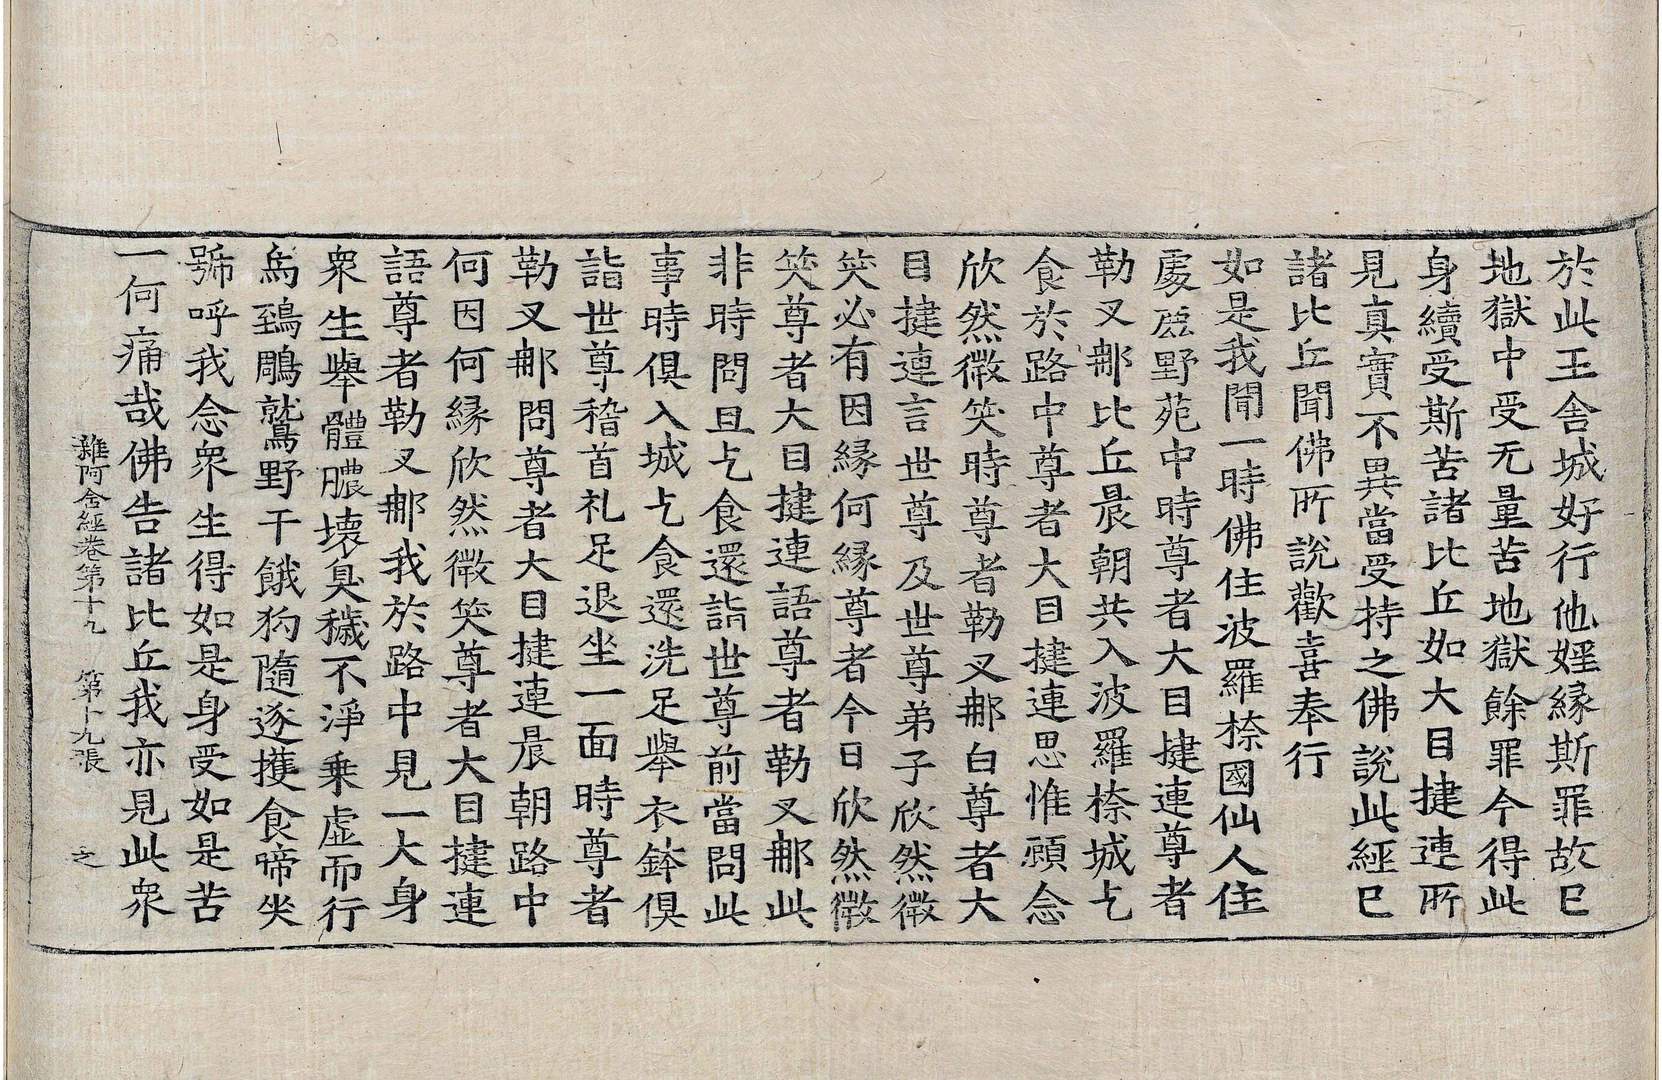 於此王舍城好行他婬緣斯罪故已
地獄中受无量苦地獄餘罪今得此
身續受斯苦諸比丘如大目揵連所
見真實不異當受持之佛說此經已
諸比丘聞佛所說歡喜奉行
如是我聞一時佛住波羅㮈國仙人住
處鹿野苑中時尊者大目揵連尊者
勒叉𨚗比丘晨朝共入波羅㮈城乞
食於路中尊者大目揵連思惟顧念
欣然微笑時尊者勒叉𨚗白尊者大
目揵連言世尊及世尊弟子欣然微
笑必有因緣何緣尊者今日欣然微
笑尊者大目揵連語尊者勒叉𨚗此
非時問且乞食還詣世尊前當問此
事時俱入城乞食還洗足舉衣鉢俱
詣世尊稽首礼足退坐一面時尊者
勒叉𨚗問尊者大目揵連晨朝路中
何因何緣欣然微笑尊者大目揵連
語尊者勒叉𨚗我於路中見一大身
衆生舉體膿壞臭穢不淨乗虛而行
烏鵄鵰鷲野干餓狗隨逐攫食啼哭
號呼我念衆生得如是身受如是苦
一何痛哉佛告諸比丘我亦見此衆
雜阿含經卷第十九　第十九張　之